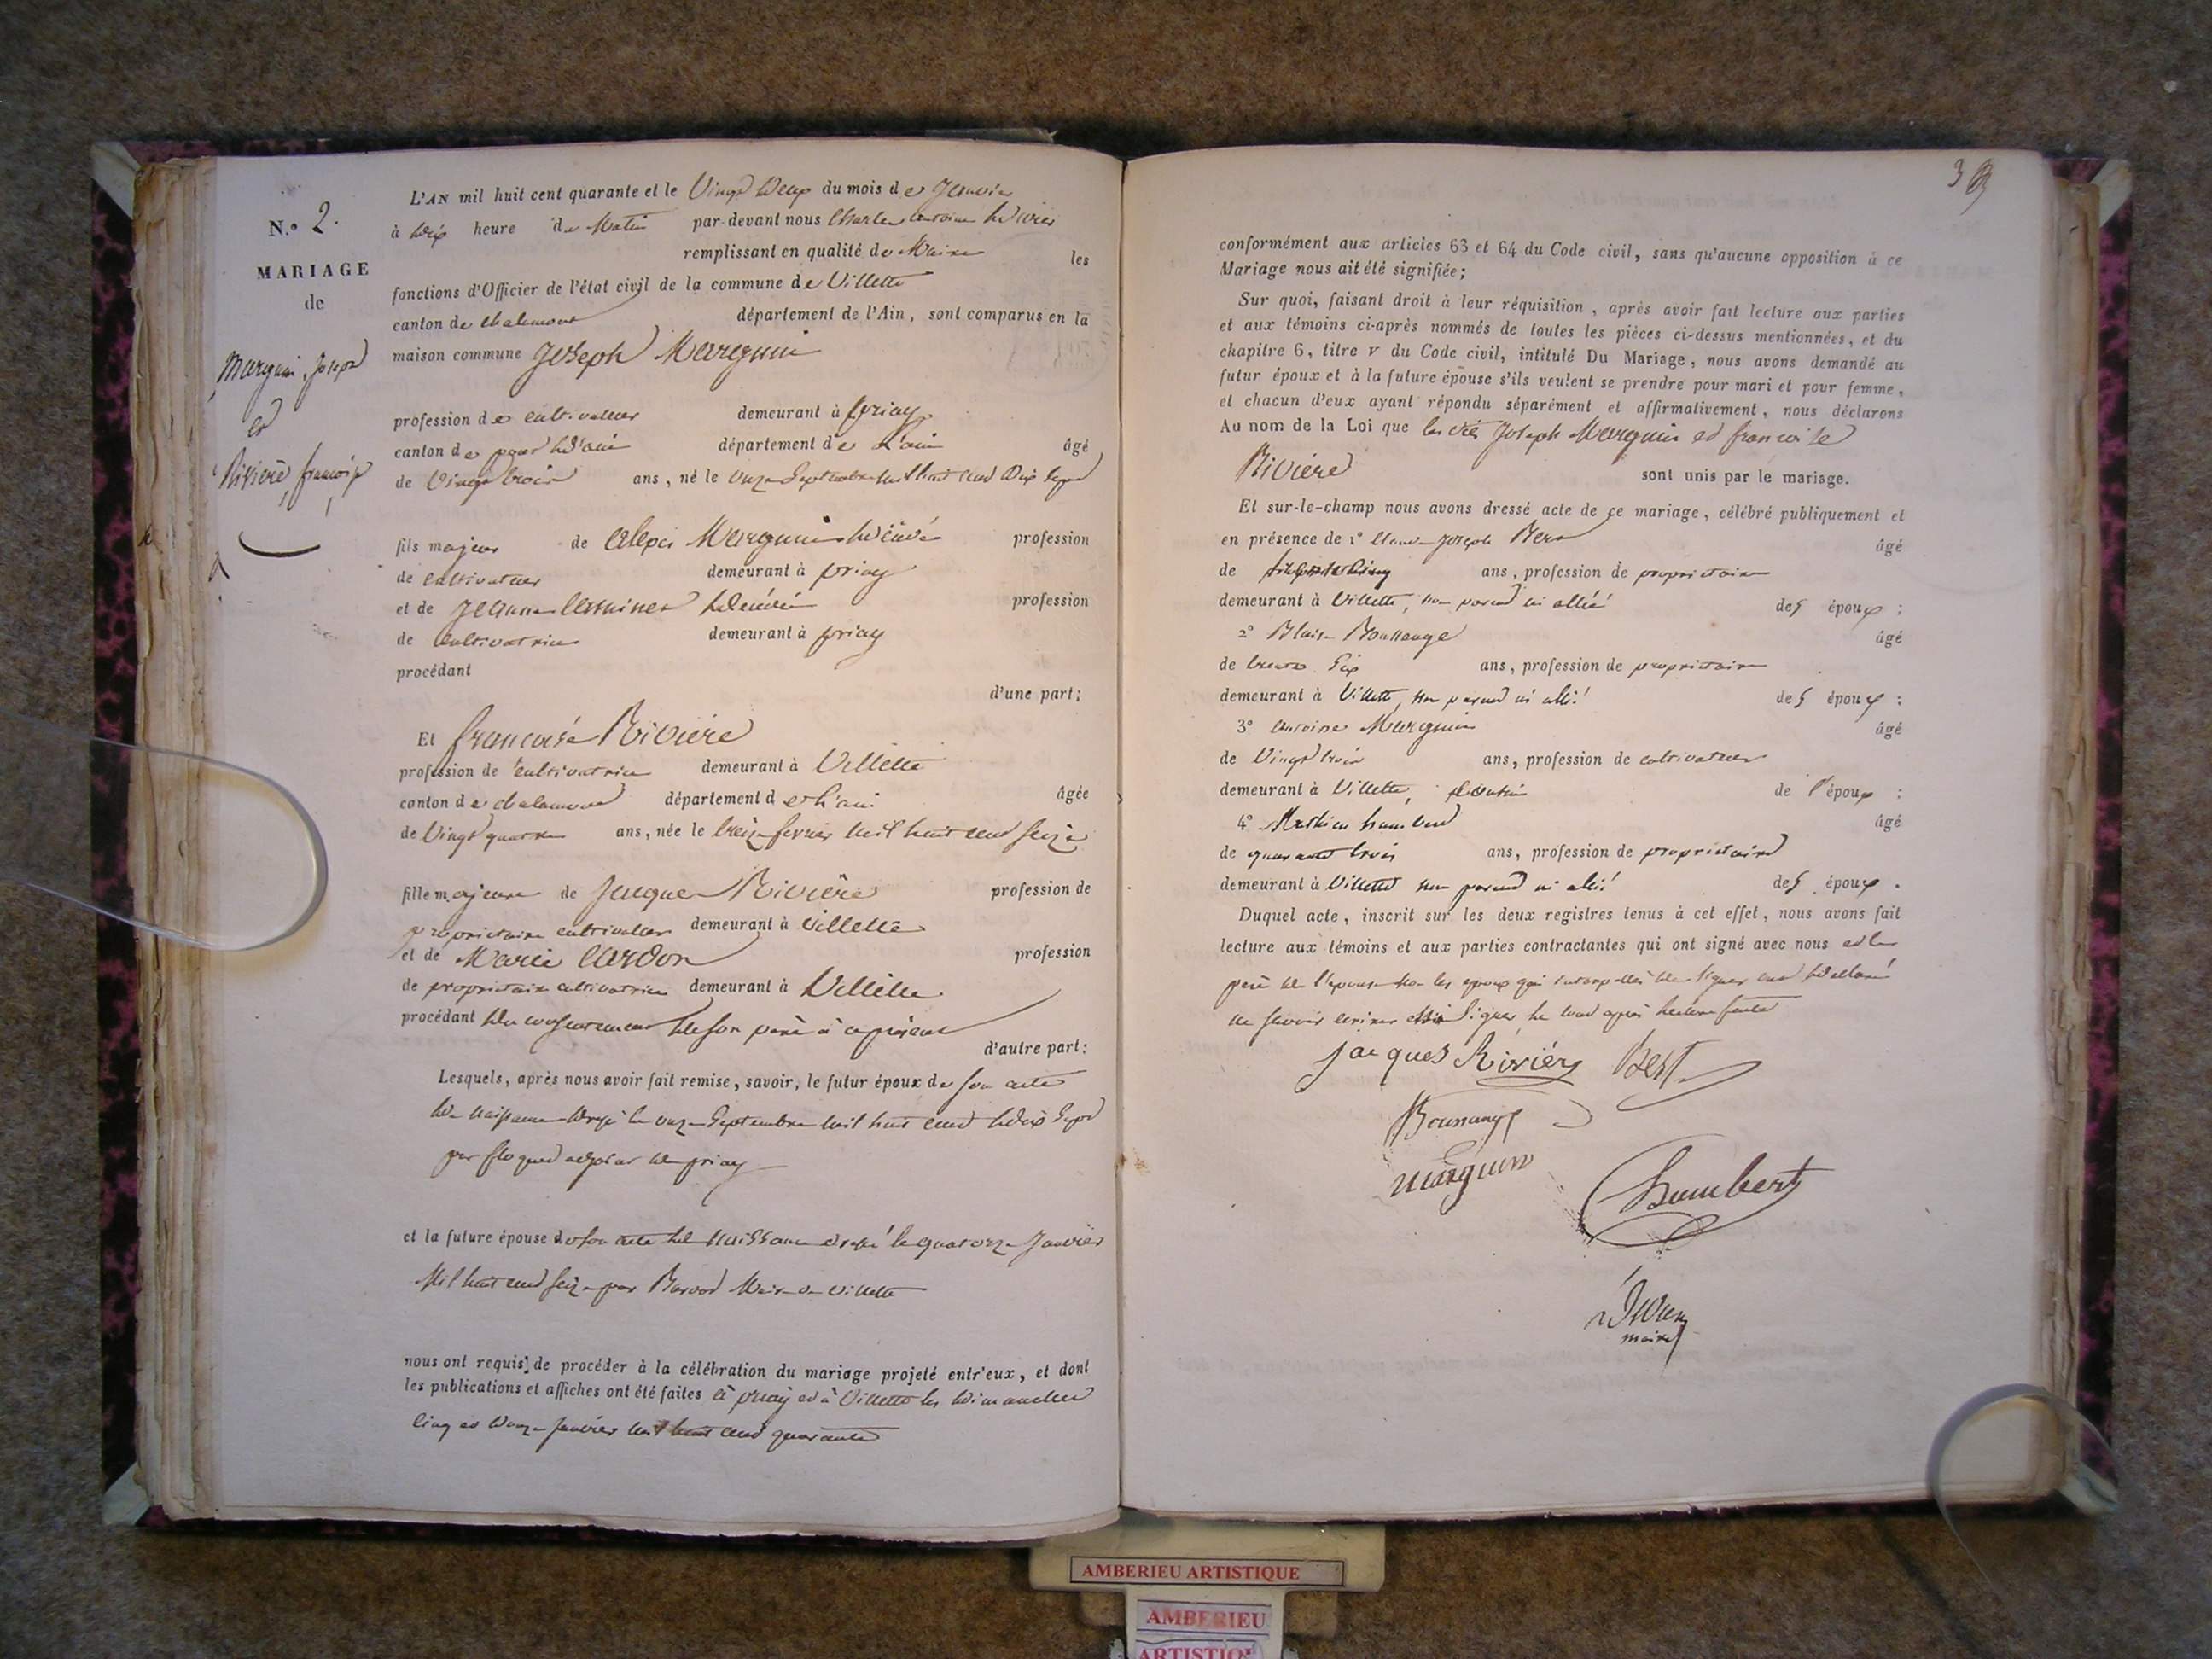 N.º 2.
MARIAGE
de
Marguin, Joseph
et
Rivière, françoise
L'AN mil huit cent quarante et le Vingt deux du mois de Janvier
à dix heure du Matin par-devant nous Charles antoine
remplissant en qualité de Maire les
fonctions d'Officier de l'état civil de la commune de Villette
canton de chalamont département de l'Ain, sont comparus en la
maison commune Joseph Marguin
profession de cultivateur demeurant à priay
canton de pont d'ain département de L'ain âgé
de Vingt trois ans, né le onze Septembre mil huit cent Dix Sept
fils majeur de alexis Marguin décédé profession
de cultivateur demeurant à priay
et de Jeanne décédée profession
de cultivatrice demeurant à priay
procédant
d'une part;
Et francoise Rivière
profession de cultivatrice demeurant à Villette
canton de chalamont département de l'ain âgée
de Vingt quatre ans, née le treize fevrier mil huit cent seize
fille majeure de Jacques Rivière profession de
proprietaire cultivateur demeurant à Villette
et de Marie Cardon profession
de proprietaire cultivatrice demeurant à Villette
procédant du consentement de son père à ce présent
d'autre part:
Lesquels, après nous avoir fait remise, savoir, le futur époux de son acte
de naissance dressé le onze Septembre mil huit cent dix Sept
par floquet adjoint de priay
et la future épouse de son acte de naissance dressé le quatorze Janvier
Mil huit cent seize par Maire de Villette
nous ont requis de procéder à la célébration du mariage projeté entr'eux, et dont
les publications et affiches ont été faites à priay et à Villette les dimanches
cinq et Douze Janvier mil huit cent quarante
3
conformément aux articles 63 et 64 du Code civil, sans qu'aucune opposition à ce
Mariage nous ait été signifiée;
Sur quoi, faisant droit à leur réquisition, après avoir fait lecture aux parties
et aux témoins ci-après nommés de toutes les pièces ci-dessus mentionnées, et du
chapitre 6, titre V du Code civil, intitulé Du Mariage, nous avons demandé au
futur époux et à la future épouse s'ils veulent se prendre pour mari et pour femme,
et chacun d'eux ayant répondu séparément et affirmativement, nous déclarons
Au nom de la Loi que les dits Joseph Marguin et francoise
Rivière sont unis par le mariage.
Et sur-le-champ nous avons dressé acte de ce mariage, célébré publiquement et
en présence de 1º Claude Joseph Bert âgé
de ans, profession de proprietaire
demeurant à Villette, non parent ni allié des époux:
2º Blaise âgé
de trente Six ans, profession de proprietaire
demeurant à Villette, non parent ni allié des époux:
3º antoine Marguin âgé
de Vingt trois ans, profession de cultivateur
demeurant à Villette, cousin de l'époux:
4º Mathieu humbert âgé
de quarante trois ans, profession de proprietaire
demeurant à Villette non parent ni allié des époux.
Duquel acte, inscrit sur les deux registres tenus à cet effet, nous avons fait
lecture aux témoins et aux parties contractantes qui ont signé avec nous et le
père de l'epouse non les epoux qui interpellés de signer ont déclaré
ne savoir ecrire Signer le tout après lecture faite
jacques Rivière Bert
marguin
humbert
maire
AMBERIEU ARTISTIQUE
AMBERIEU